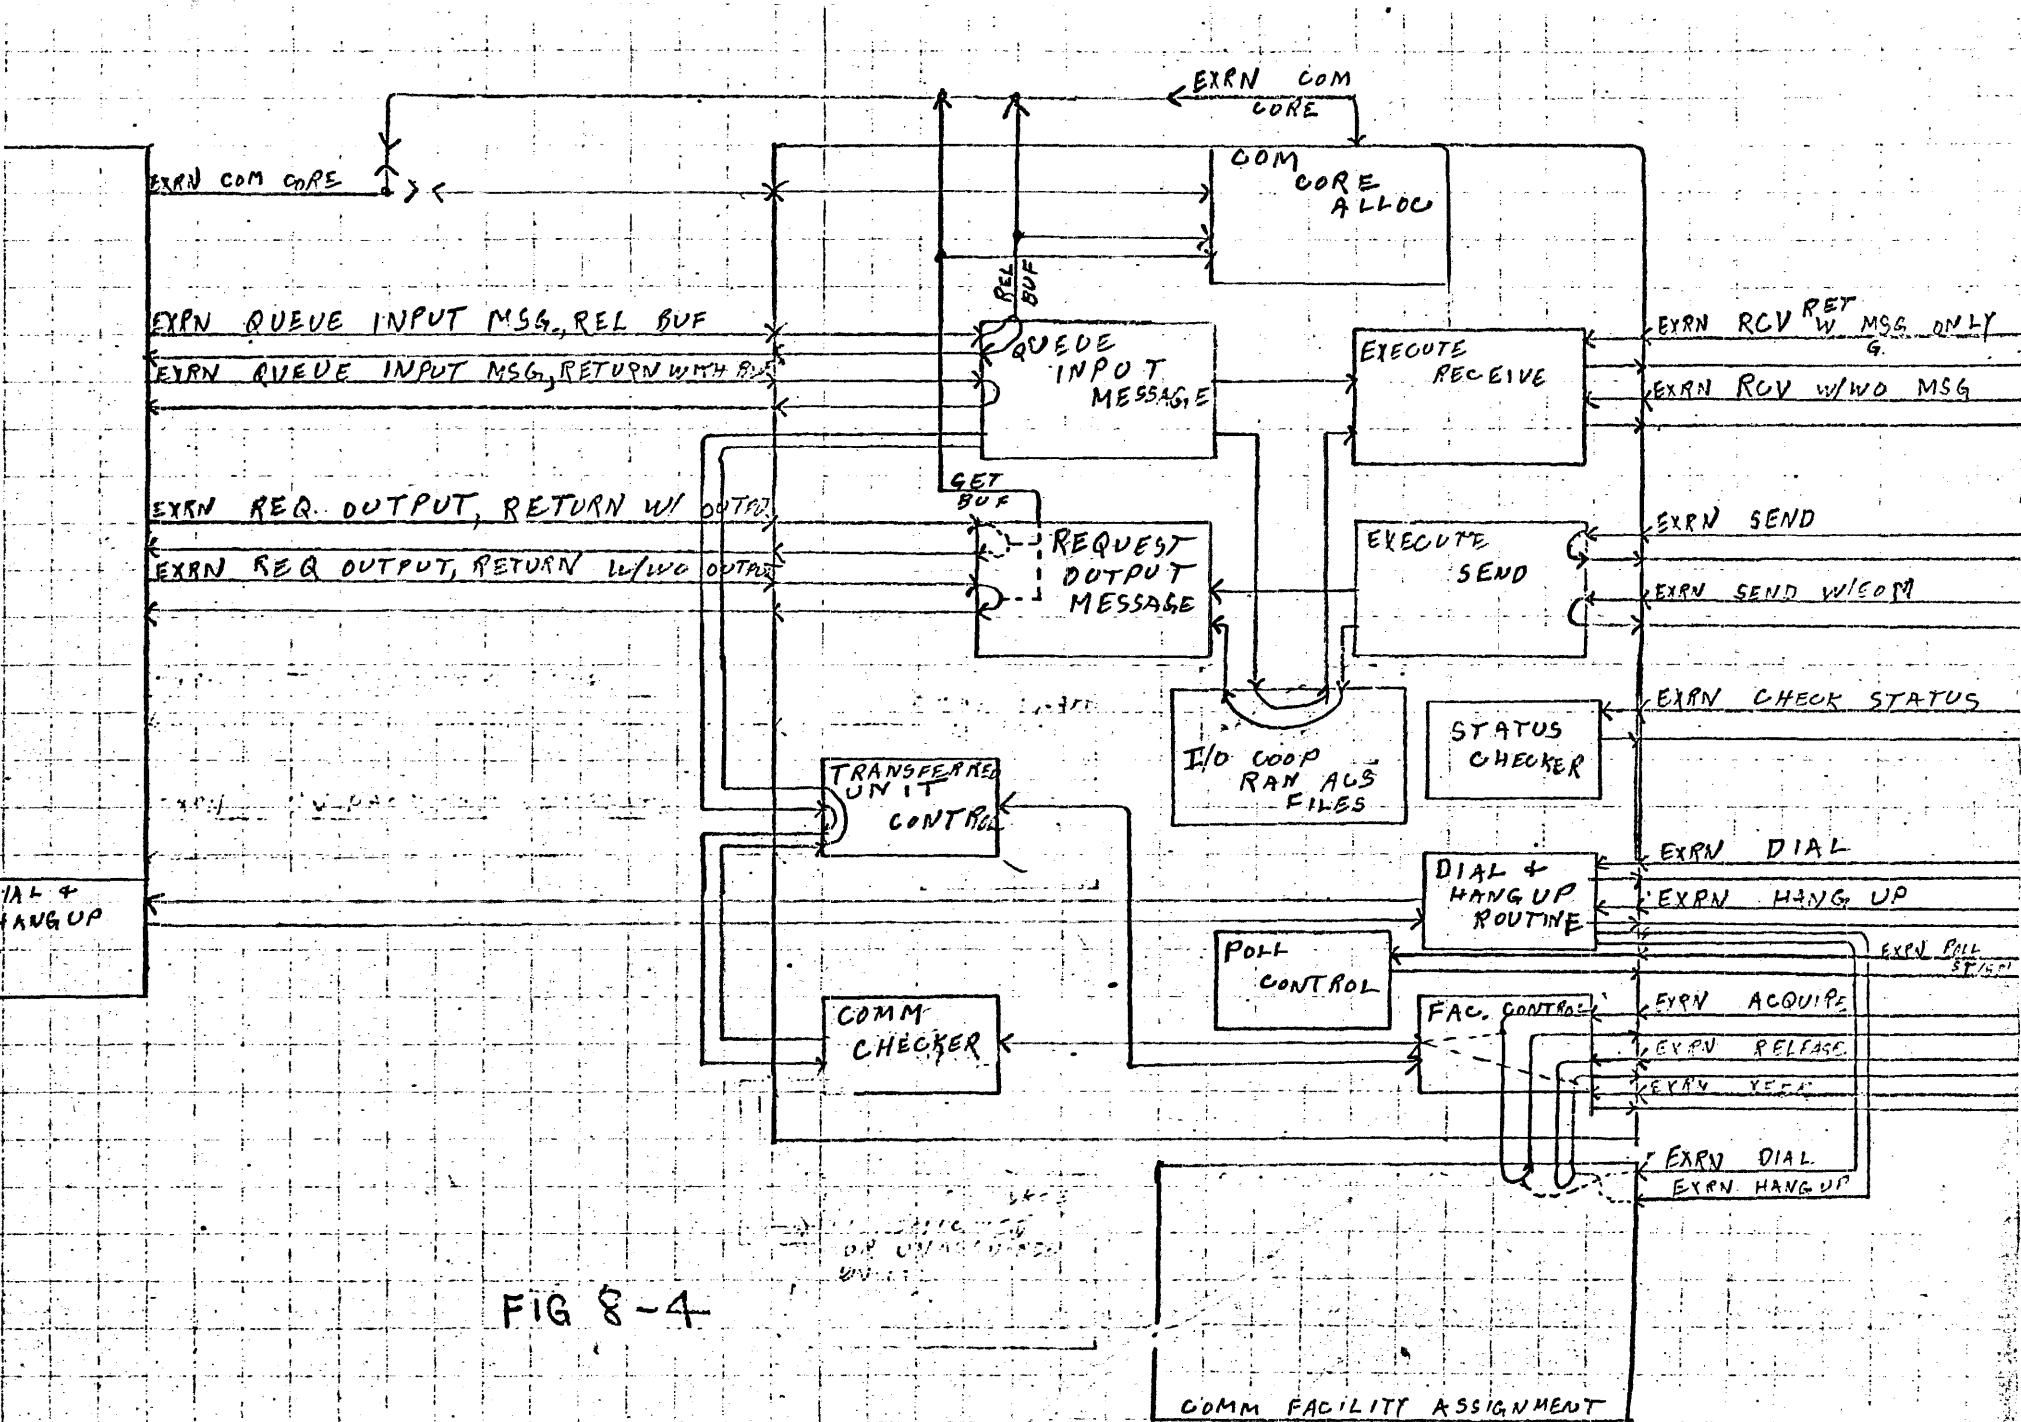 EXRN COM
CORE
EXRN COM CORE
COM
CORE
ALLOC
REL
BUF
EXRN QUEUE INPUT MSG., REL BUF
EXRN QUEUE INPUT MSG, RETURN WITH
QUEUE
INPUT
MESSAGE
EXECUTE
RECEIVE
EXRN RCV RET W MSG ONLY
G.
EXRN RCV W/WO MSG
GET
BUF
EXRN REQ. OUTPUT, RETURN W/
EXRN REQ OUTPUT, RETURN W/WO
REQUEST
OUTPUT
MESSAGE
EXECUTE
SEND
EXRN SEND
EXRN SEND W/COM
I/O COOP
RAN ACS
FILES
STATUS
CHECKER
EXRN CHECK STATUS
TRANSFERRED
UNIT
CONTROL
IAL &
HANG UP
DIAL &
HANG UP
ROUTINE
EXRN DIAL
EXRN HANG UP
POLL
CONTROL
EXRN POLL
COMM
CHECKER
FAC. CONTROL
EXRN ACQUIRE
EXRN RELEASE
EXRN
EXRN DIAL
EXRN HANG UP
FIG 8-4
COMM FACILITY ASSIGNMENT